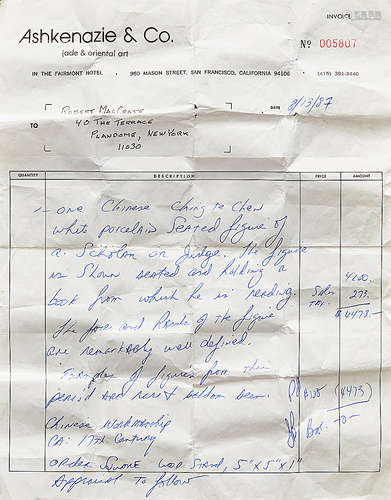 INVOICE
Ashkenazie & Co.
jade & oriental art
No 005807
IN THE FAIRMONT HOTEL • 950 MASON STREET, SAN FRANCISCO, CALIFORNIA 94106 • (415) 391-3440
DATE 8/13/87
TO
40 THE TERRACE
PLANDOME, NEW YORK
11030
QUANTITY DESCRIPTION PRICE AMOUNT
1- One Chinese Ching to Chen
White porcelain Seated figure of
a Scholar or Judge. The figure
is Shown seated and holding a
book from which he is reading.
Sales Tax. 273.
The face and of the figure
are remarkably well defined.
Examples of figures from this
period are rare & seldom seen.
(4473)
Chinese Workmanship
Bal. -0-
CA: 17th Century
ORDER Square WOOD STAND, 5"x5"x1"
Appraisal to follow